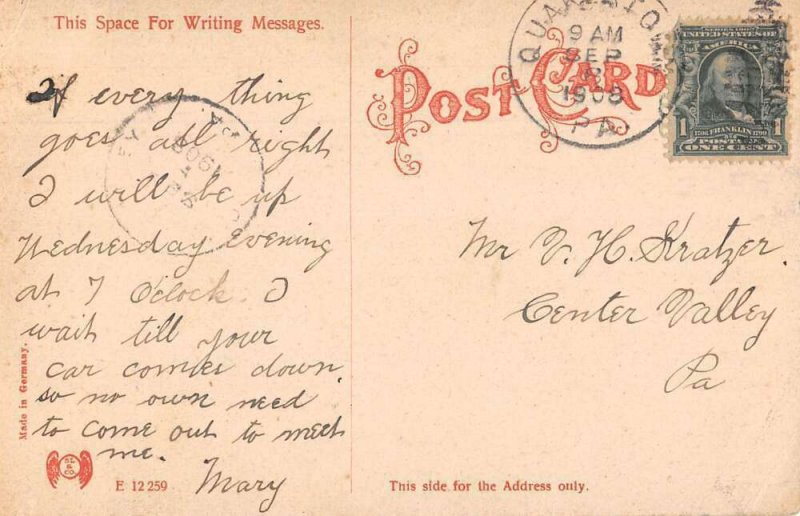 This Space For Writing Messages.
If every thing
goes all right
I will be up
Wednesday evening
at 7 O'clock. I
wait till your
car comes down
so no own need
to come out to meet
me.
Mary
Made in Germany.
E 12259
POST CARD
QUAKERTO
9 AM
SEP
1908
PA.
SERIES 1902
UNITED STATES OF
AMERICA
1706 FRANKLIN 1790
POSTAGE
1 ONE CENT
Mr V. H. Kratzer.
Center Valley
Pa
This side for the Address only.